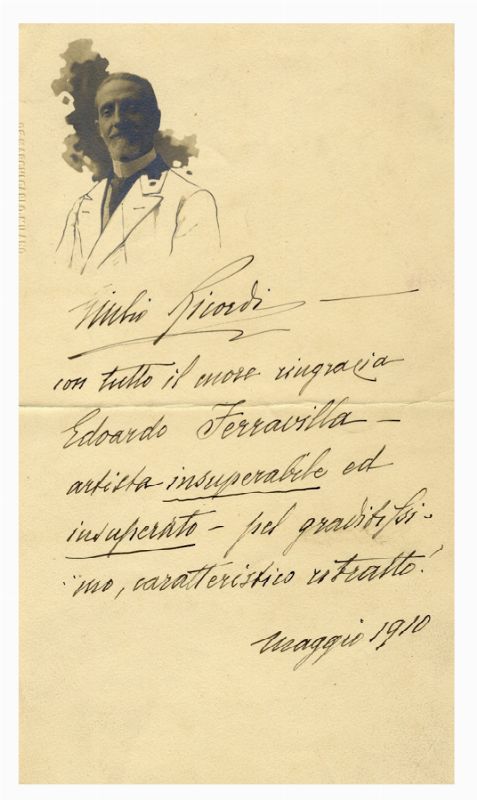 Giulio Ricordi —
con tutto il cuore ringrazia
Edoardo Ferravilla —
artista insuperabile ed
insuperato — pel graditissi-
mo, caratteristico ritratto!
Maggio 1910